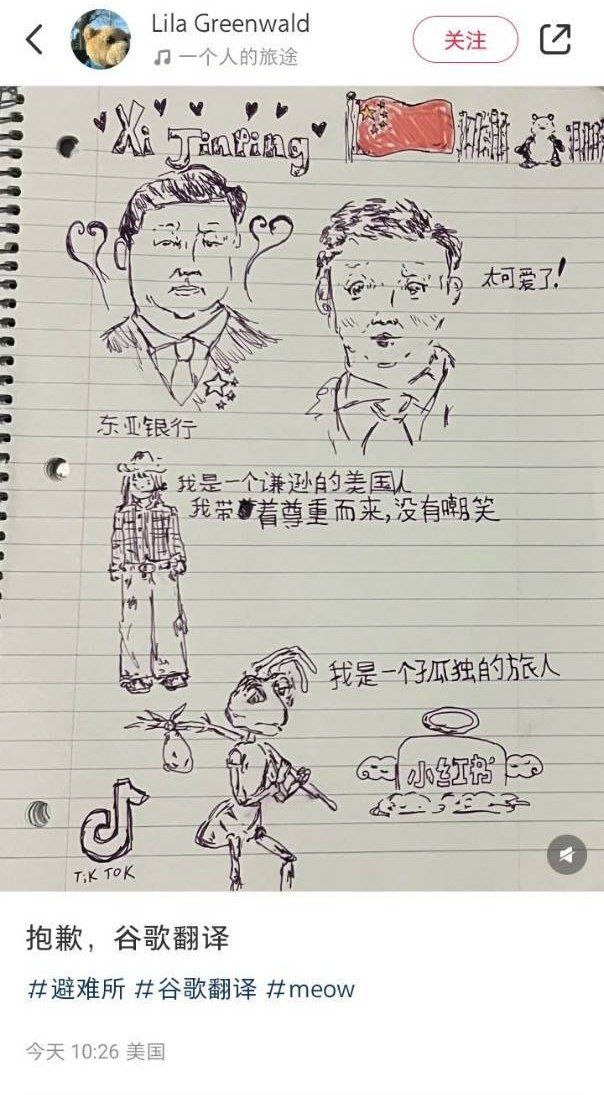 Lila Greenwald
一个人的旅途
关注
Xi Jinping
太可爱了!
东亚银行
我是一个谦逊的美国人
我带着尊重而来,没有嘲笑
我是一个孤独的旅人
小红书
TiK TOK
抱歉，谷歌翻译
#避难所 #谷歌翻译 #meow
今天 10:26 美国